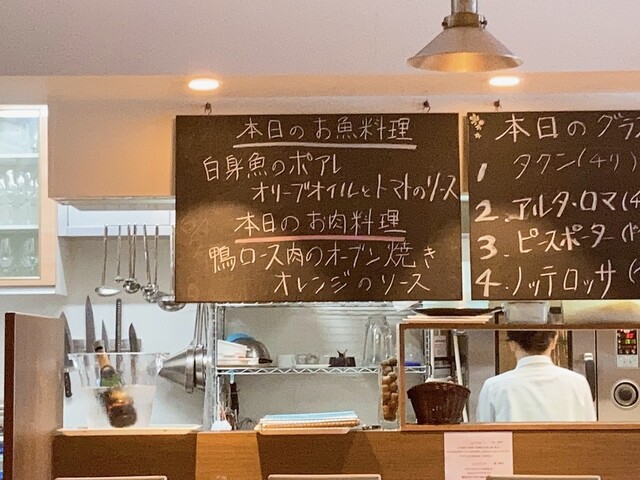 本日のお魚料理
白身魚のポアレ
オリーブオイルとトマトのソース
本日のお肉料理
鴨ロース肉のオーブン焼き
オレンジのソース
本日のグラス
1 タクン(チリ)
2. アルタ・ロマ(
3. ピースポーター(ド
4. ノッテロッサ(